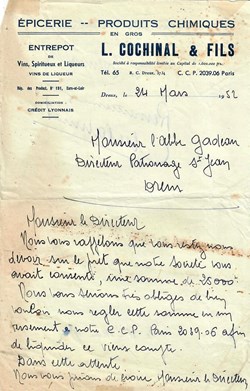 ÉPICERIE -- PRODUITS CHIMIQUES
EN GROS
ENTREPOT
de
Vins, Spiritueux et Liqueurs
VINS DE LIQUEUR
DOMICILIATION
CRÉDIT LYONNAIS
L. COCHINAL & FILS
Société à responsabilité limitée au Capital de
Tél. 65 R. C. Dreux C. C. P. 2039.06 Paris
Dreux, le 24 Mars 1952
Monsieur l'abbé Gadeau
Directeur Patronage St Jean
Dreux
Monsieur le Directeur
Nous vous rappelons que vous restez nous
devoir sur le prêt que notre Société vous
avait consenti, une somme de 25000
Nous vous serions très obligés de bien
vouloir nous régler cette somme en un
versement à notre C.C.P. Paris 2039.06 afin
de liquider ce vieux compte.
Dans cette attente
Nous vous prions de croire, Monsieur le Directeur